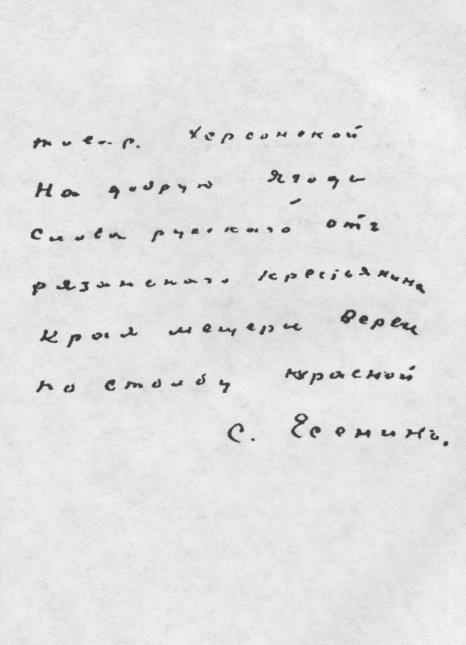 Херсонской
На добрую Ягоди
Слова русскаго отъ
рязанскаго крестьянина
Края мещери Вереи
по столбу красной
С. Есенинъ.